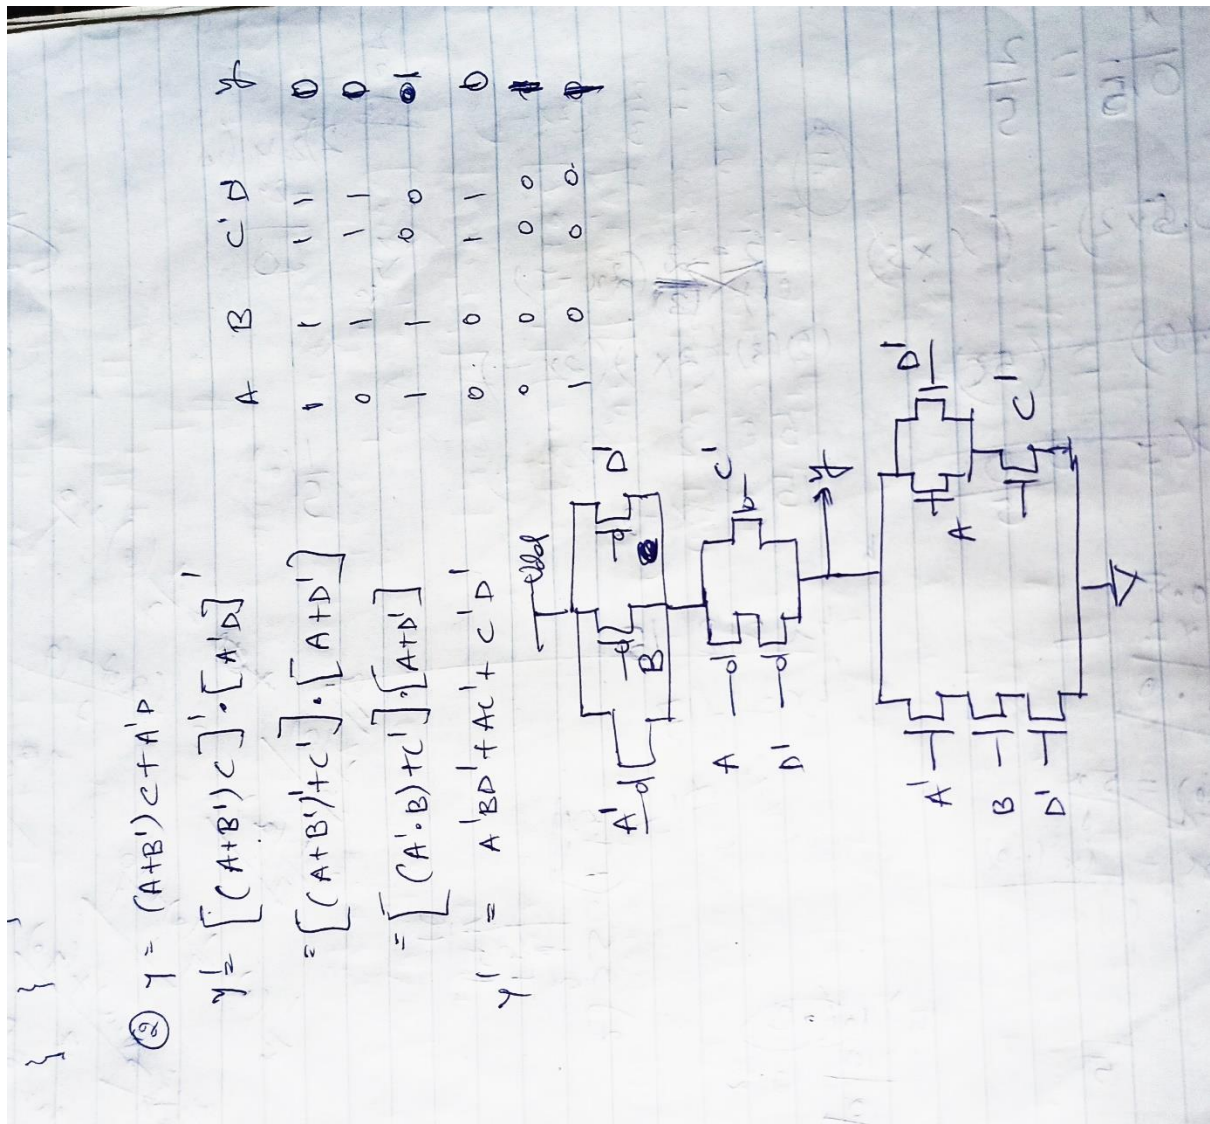 ② Y = (A+B')C + A'D
y' = [(A+B')C]' . [A'D]'
= [(A+B')'+C'] . [A+D']
= [(A'.B)+C'] . [A+D']
Y' = A'BD' + AC' + C'D'
A B C' D' y
1 1 1 1 0
0 1 1 1 0
1 1 0 0
0 0 1 1 0
0 0 0 0
1 0 0 0
Vdd
A' B D'
A C'
D'
y
A' A D'
B C'
D'